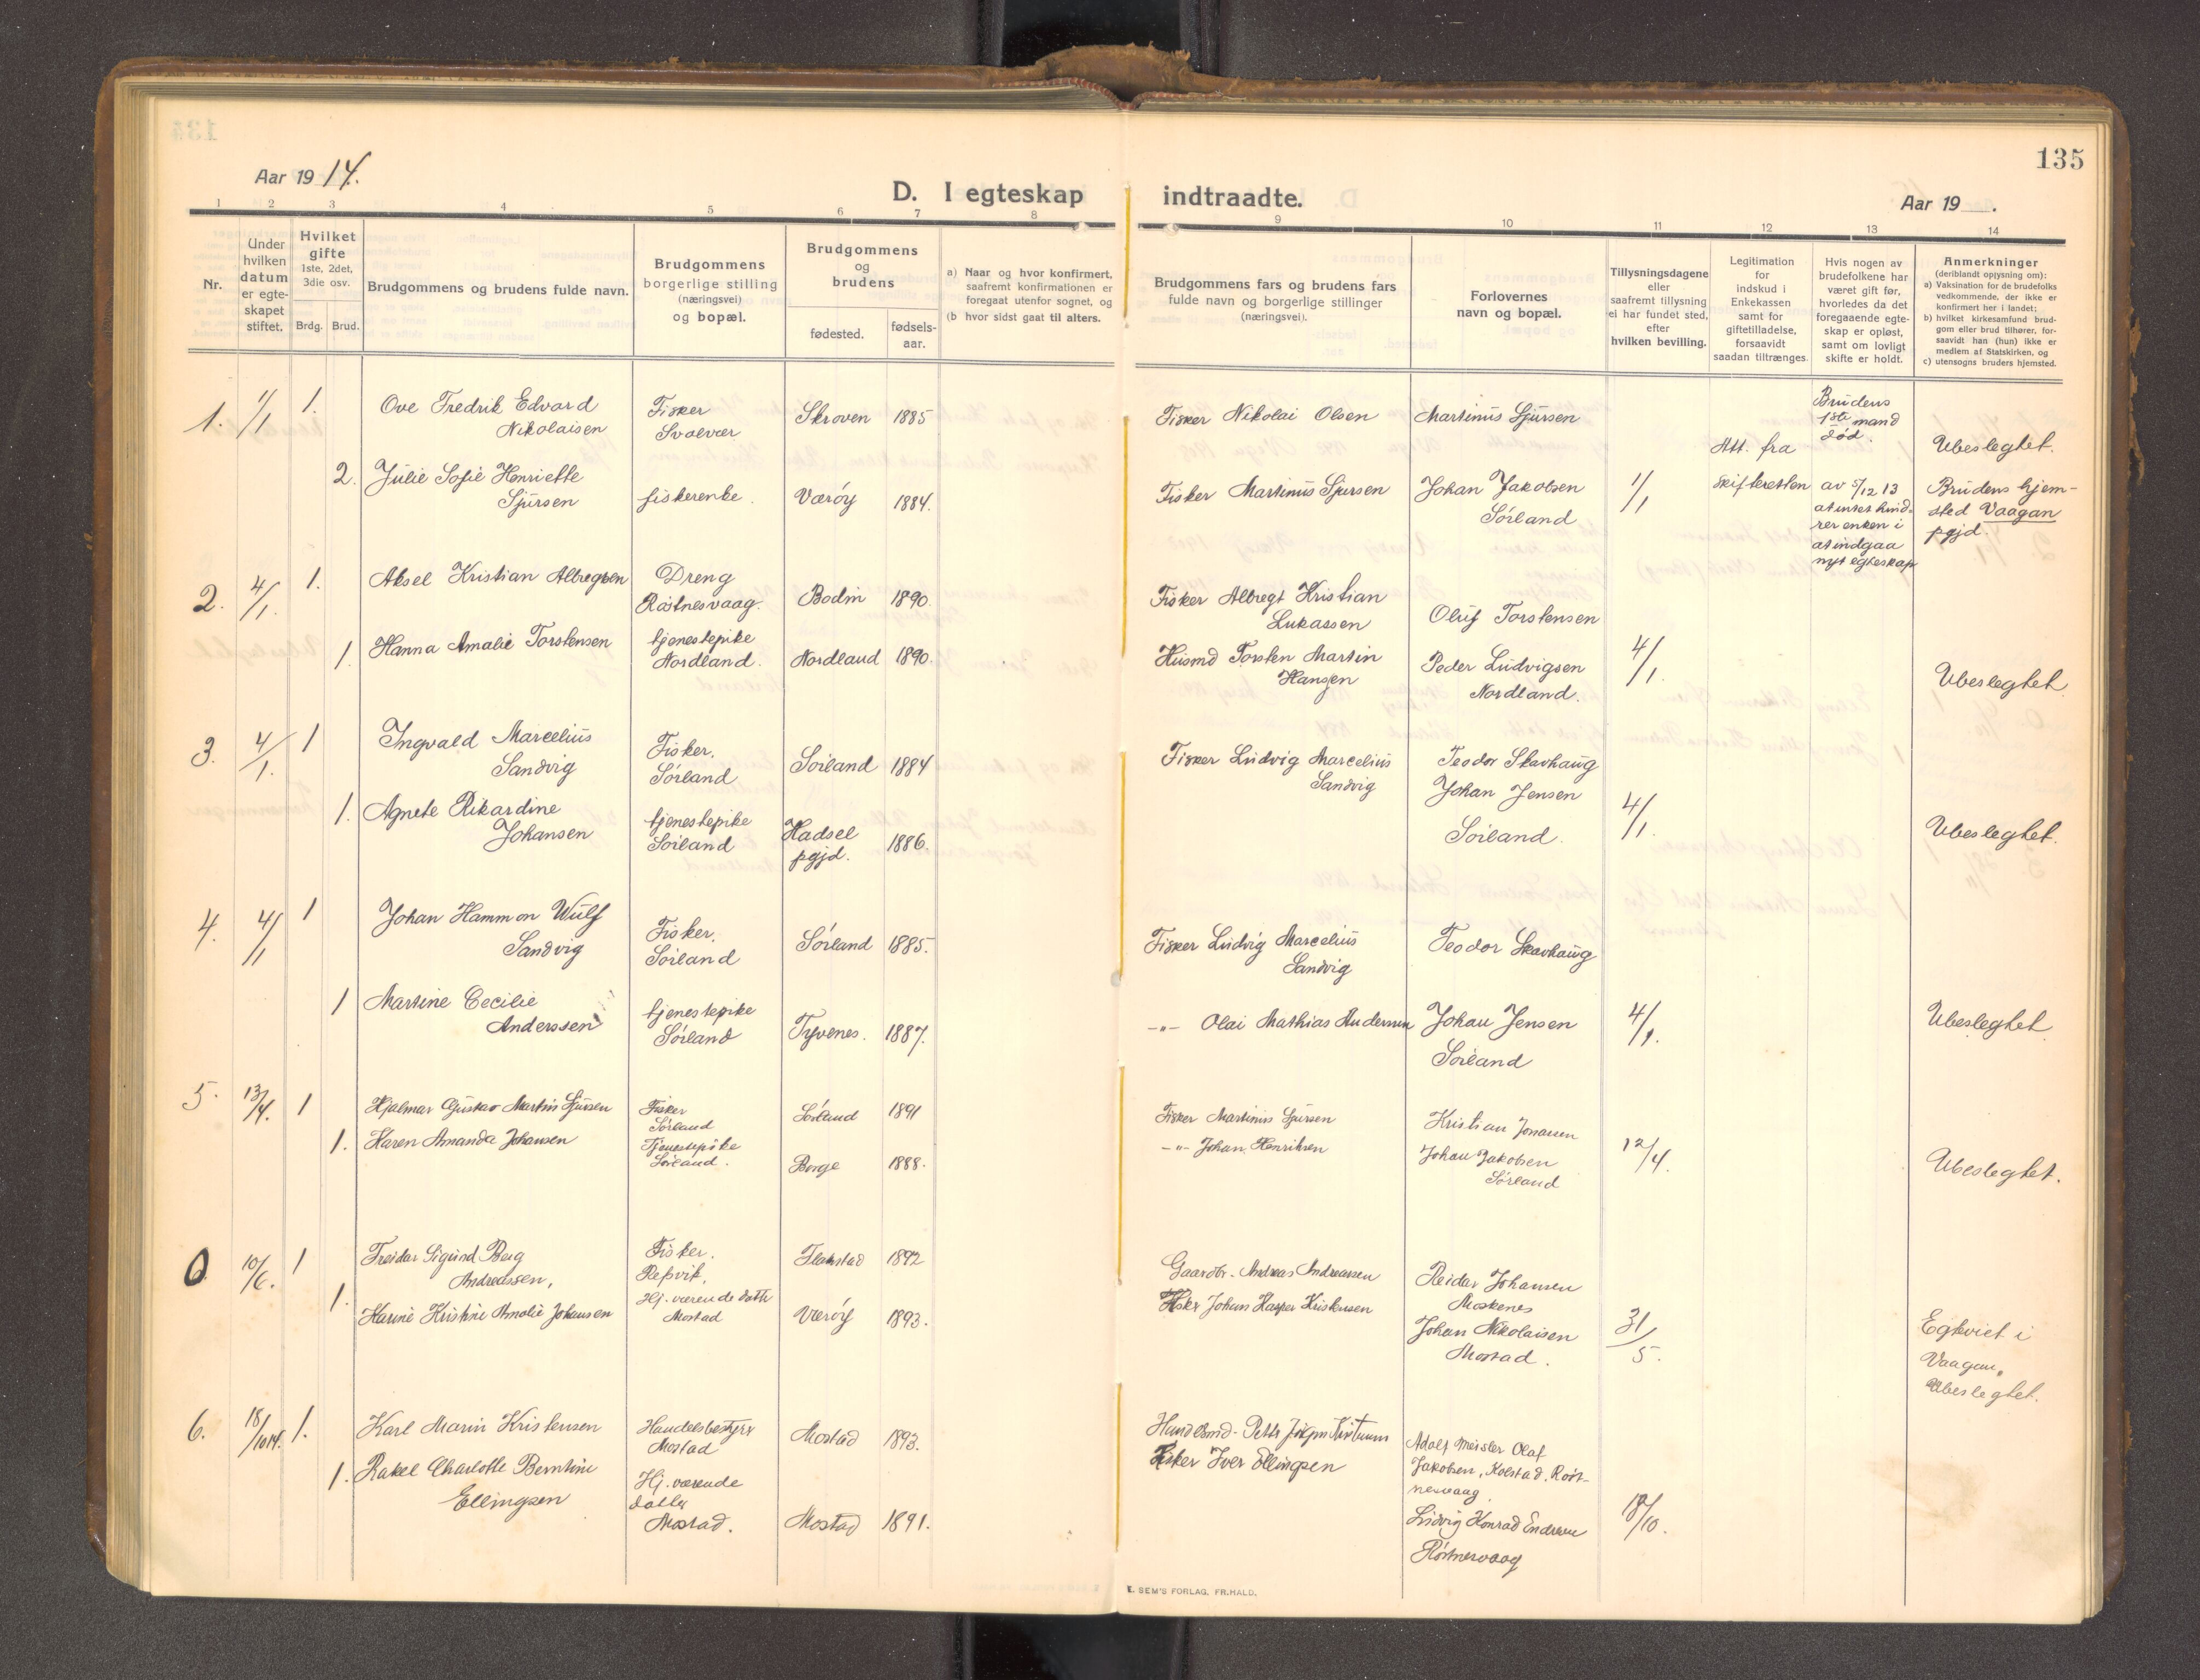 135
Aar 19 14.
D. I egteskap indtraadte.
Aar 19 .
1 2 3 4 5 6 7 8 9 10 11 12 13 14
Nr.
Under hvilken datum er egteskapet stiftet.
Hvilket gifte 1ste, 2det, 3die osv.
Brdg. Brud.
Brudgommens og brudens fulde navn.
Brudgommens borgerlige stilling (næringsvei) og bopæl.
Brudgommens og brudens
fødested.
fødsels-aar.
a) Naar og hvor konfirmert, saafremt konfirmationen er foregaat utenfor sognet, og
(b hvor sidst gaat til alters.
Brudgommens fars og brudens fars fulde navn og borgerlige stillinger (næringsvei).
Forlovernes navn og bopæl.
Tillysningsdagene eller saafremt tillysning ei har fundet sted, efter hvilken bevilling.
Legitimation for indskud i Enkekassen samt for giftetilladelse, forsaavidt saadan tiltrænges.
Hvis nogen av brudefolkene har været gift før, hvorledes da det foregaaende egteskap er opløst, samt om lovligt skifte er holdt.
Anmerkninger (deriblandt opjysning om):
a) Vaksination for de brudefolks vedkommende, der ikke er konfirmert her i landet;
b) hvilket kirkesamfund brudgom eller brud tilhører, forsaavidt han (hun) ikke er medlem af Statskirken, og
c) utensogns bruders hjemsted.
1. 1/1 1. Ove Fredrik Edvard Nikolaisen
Fisker Svolvær
Skroven 1885
Fisker Nikolai Olsen
Martinus Sjursen
2. Julie Sofie Henriette Sjursen
fiskerenke.
Værøy 1884.
Fisker Martinus Sjursen
Johan Jakobsen Sörland
1/1
Att. fra skifteretten
Brudens 1ste mand død.
av 5/12 13 at intet hindrer enken i at indgaa nyt egteskap
Ubeslegtet.
Brudens hjemsted Vaagan pgjd.
2. 4/1. 1. Aksel Kristian Albregtsen
Dreng Røstnesvaag.
Bodin 1890.
Fisker Albregt Kristian Lukassen
Oluf Torstensen
1. Hanna Amalie Torstensen
tjenestepike Nordland.
Nordland 1890.
Husmd Torsten Martin Hansen
Peder Ludvigsen Nordland.
4/1.
Ubeslegtet.
3. 4/1. 1 Ingvald Marcelius Sandvig
Fisker. Sörland
Sörland 1884
Fisker Ludvig Marcelius Sandvig
Teodor Skavhaug
1. Agnete Rikardine Johansen
tjenestepike Sörland
Hadsel pgjd. 1886.
Johan Jensen Sörland.
4/1.
Ubeslegtet.
4. 4/1 1 Johan Hammon Wulf Sandvig
Fisker. Sörland
Sörland 1885.
Fisker Ludvig Marcelius Sandvig
Teodor Skavhaug
1 Martine Cecilie Anderssen
tjenestepike Sörland
Tyvenes. 1887.
-"- Olai Mathias Andersen
Johan Jensen Sörland
4/1.
Ubeslegtet.
5. 13/4. 1 Hjalmar Gustav Martin Sjursen
Fisker Sörland
Sörland 1891
Fisker Martinus Sjursen
Kristian Jonassen
1. Karen Amanda Johansen
Tjenestepike Sörland.
Borge 1888.
-"- Johan Henriksen
Johan Jakobsen Sörland
12/4.
Ubeslegtet.
0 10/6. 1 Freidar Sigurd Berg Andreassen,
Fisker. Refsvik.
Flakstad 1892
Gaardbr. Andreas Andreassen
Reidar Johansen Moskenes
1. Karine Kristine Amalie Johansen
Hj. værende datter Mostad
Værøy 1893.
Fisker Johan Kasper Kristensen
Johan Nikolaisen Mostad.
31/5.
Egteviet i Vaagan.
Ubeslegtet.
6. 18/10 14. 1. Karl Marin Kristensen
Handelsbestyrer Mostad
Mostad 1893.
Adolf Meisler Olaf Jakobsen, Kolstad, Røstnesvaag
1. Rakel Charlotte Berntine Ellingsen
Hj. værende datter Mostad.
Mostad 1891.
Fisker Iver Ellingsen
Ludvig Konrad Endresen Røstnesvaag
18/10.
Ubeslegtet.
E. SEM'S FORLAG, FR.HALD.